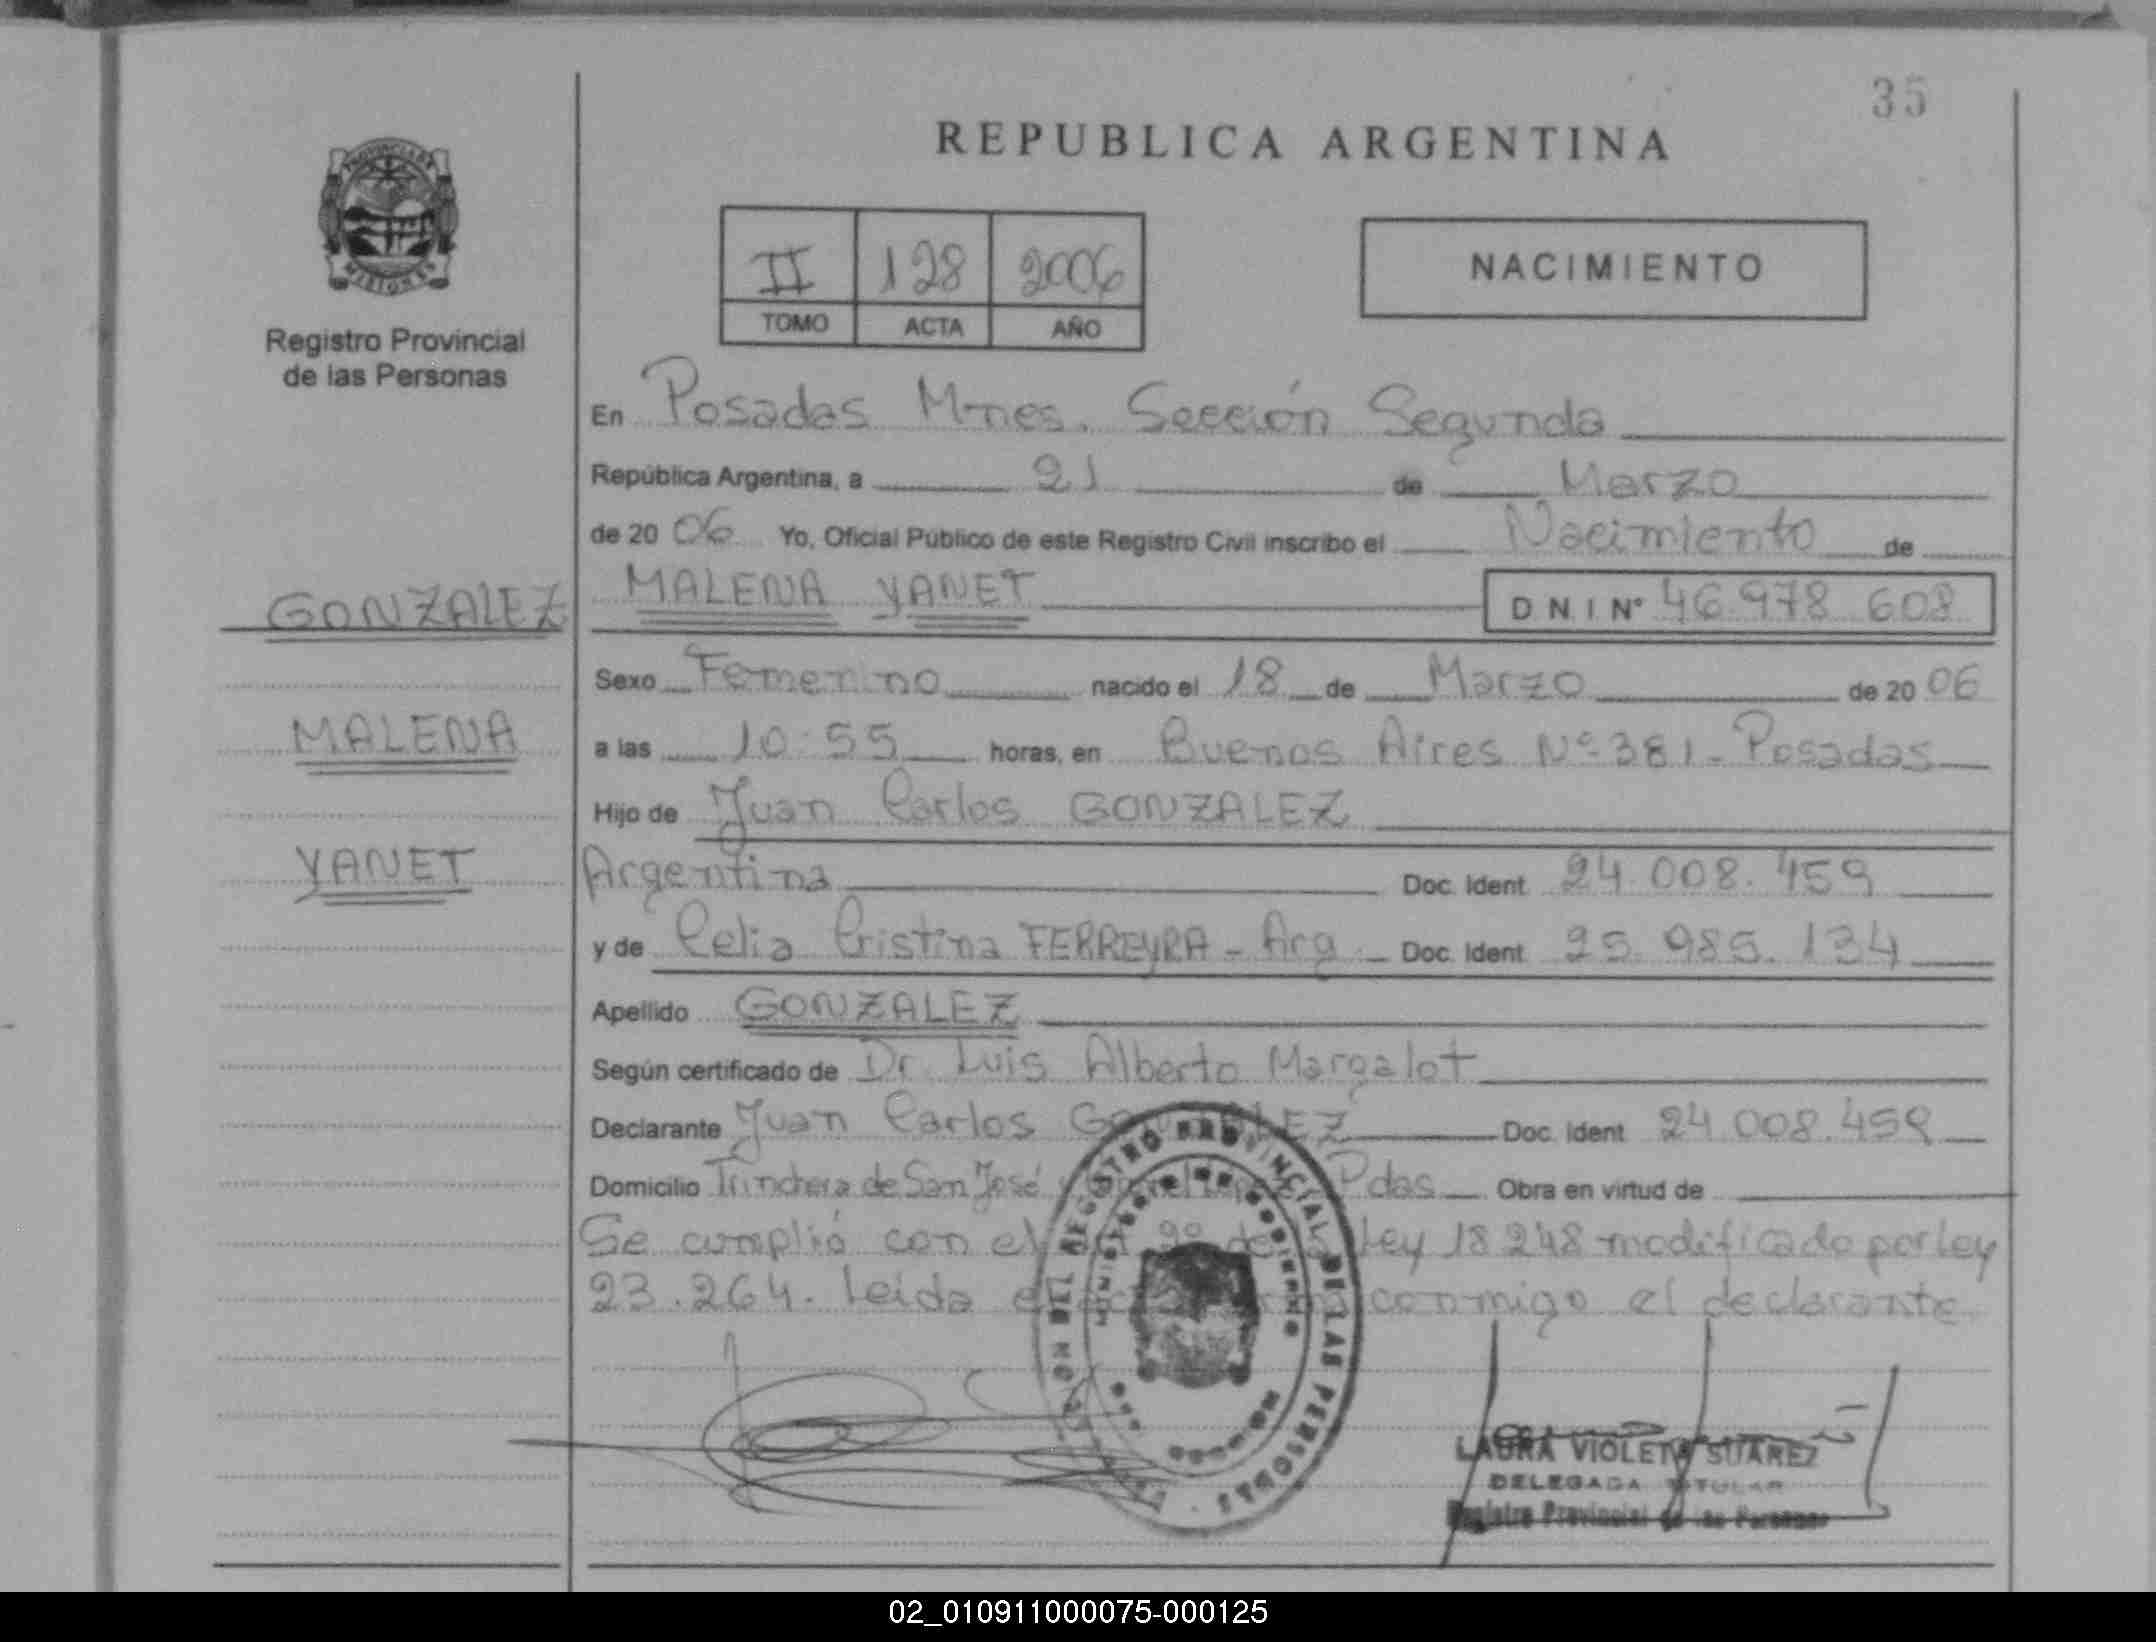 35
REPUBLICA ARGENTINA
PROVINCIA DE
MISIONES
Registro Provincial
de las Personas
II 128 2006
TOMO ACTA AÑO
NACIMIENTO
En Posadas Mnes. Sección Segunda
República Argentina, a 21 de Marzo
de 20 06 Yo, Oficial Público de este Registro Civil inscribo el Nacimiento de
GONZALEZ
MALENA YANET D N I Nº 46.978 608
Sexo Femenino nacido el 18 de Marzo de 20 06
MALENA
a las 10:55 horas, en Buenos Aires Nº 381 - Posadas
Hijo de Juan Carlos GONZALEZ
YANET
Argentina Doc. Ident 24.008.459
y de Celia Cristina FERREYRA - Arg. Doc. Ident 25.985.134
Apellido GONZALEZ
Según certificado de Dr. Luis Alberto Margalot
Declarante Juan Carlos GONZALEZ Doc. Ident 24.008.459
Domicilio Trinchera de San José Pdas Obra en virtud de
Se cumplió con el 2º de Ley 18 248 modificado por Ley
23.264. Leida conmigo el declarante
DEL REGISTRO PROVINCIAL DE LAS PERSONAS
MINISTERIO DE GOBIERNO
LAURA VIOLETA SUAREZ
DELEGADA TITULAR
Registro Provincial de las Personas
02_010911000075-000125